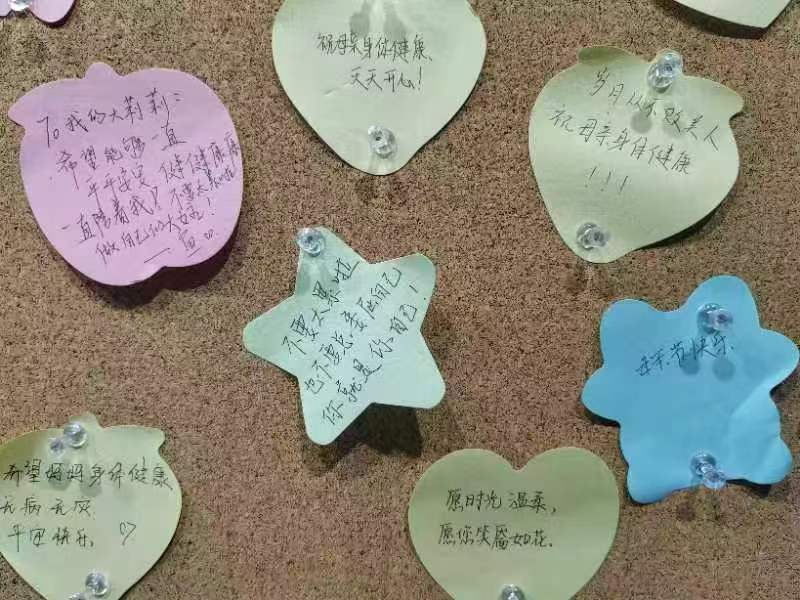 祝母亲身体健康、
天天开心!
岁月从不败美人
祝母亲身体健康
!!!
To 我的大莉莉:
希望能够一直
平平安安,健健康康
一直陪着我!不要太累啦
做自己的大女主!
不要太累啦
也不要总委屈自己
你就是你自己!
母亲节快乐、
希望妈妈身体健康
无病无灾
平安快乐、
愿时光温柔,
愿您笑靥如花、